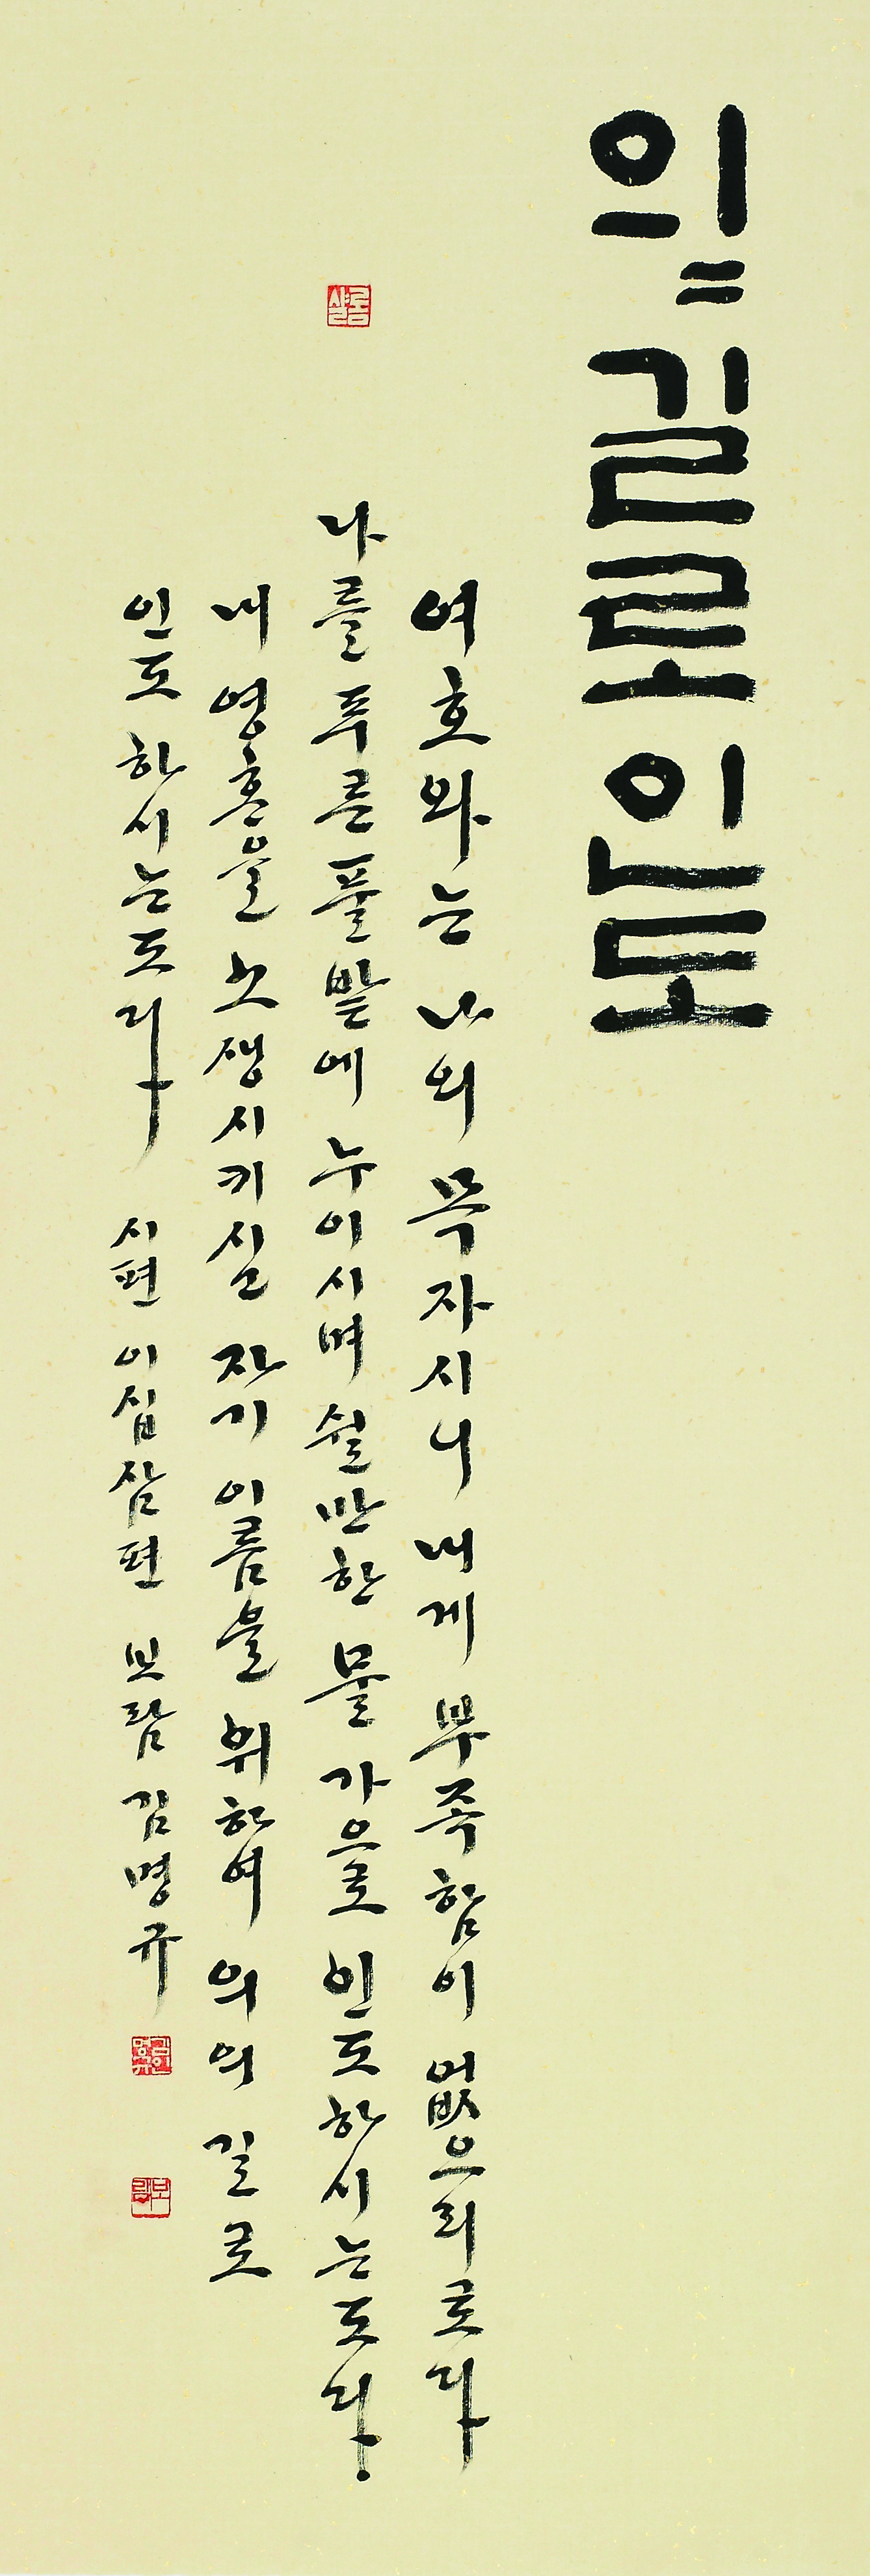 의〃길로인도
여호와는 나의 목자시니 내게 부족함이 없으리로다
나를 푸른 풀밭에 누이시며 쉴만한 물가으로 인도하시는도다
내 영혼을 소생시키실 자기 이름을 위하여 의의 길로
인도하시는도다 시편 이십삼편 보람 김명규
샬롬
보람